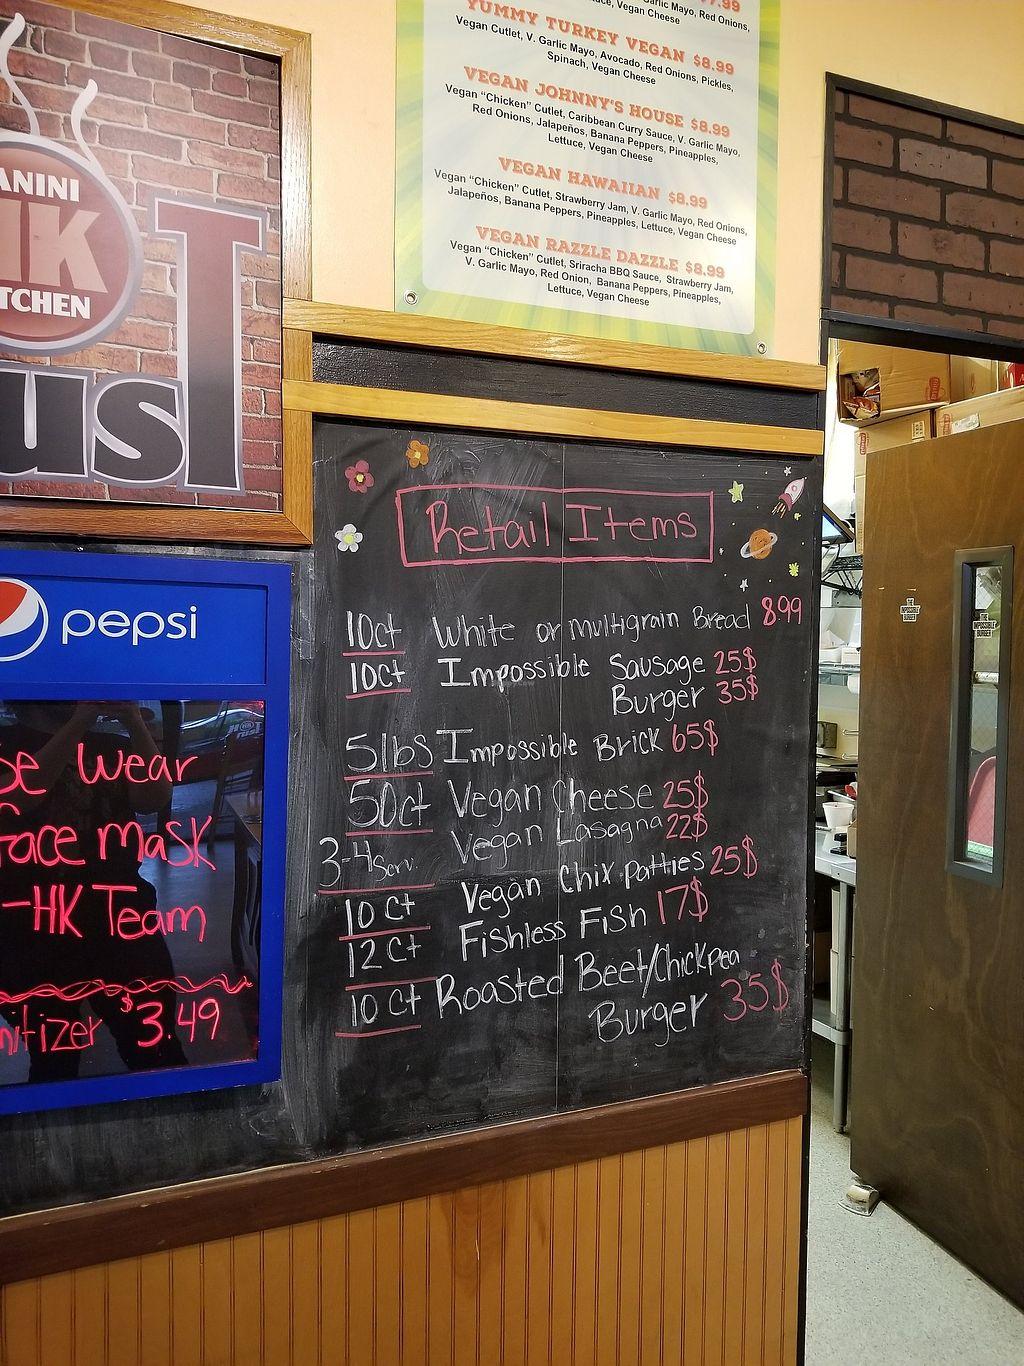 $7.99
Mayo, Red Onions,
Vegan Cheese
YUMMY TURKEY VEGAN $8.99
Vegan Cutlet, V. Garlic Mayo, Avocado, Red Onions, Pickles,
Spinach, Vegan Cheese
VEGAN JOHNNY'S HOUSE $8.99
Vegan "Chicken" Cutlet, Caribbean Curry Sauce, V. Garlic Mayo,
Red Onions, Jalapeños, Banana Peppers, Pineapples,
Lettuce, Vegan Cheese
VEGAN HAWAIIAN $8.99
Vegan "Chicken" Cutlet, Strawberry Jam, V. Garlic Mayo, Red Onions,
Jalapeños, Banana Peppers, Pineapples, Lettuce, Vegan Cheese
VEGAN RAZZLE DAZZLE $8.99
Vegan "Chicken" Cutlet, Sriracha BBQ Sauce, Strawberry Jam,
V. Garlic Mayo, Red Onion, Banana Peppers, Pineapples,
Lettuce, Vegan Cheese
ANINI
HK
TCHEN
usT
pepsi
se wear
face mask
-HK Team
nitizer $3.49
Retail Items
10ct White or multigrain Bread 8.99
10ct Impossible Sausage 25$
Burger 35$
5lbs Impossible Brick 65$
50ct Vegan Cheese 25$
3-4 Serv. Vegan Lasagna 22$
10 ct Vegan Chix patties 25$
12 ct Fishless Fish 17$
10 ct Roasted Beet/Chickpea
Burger 35$